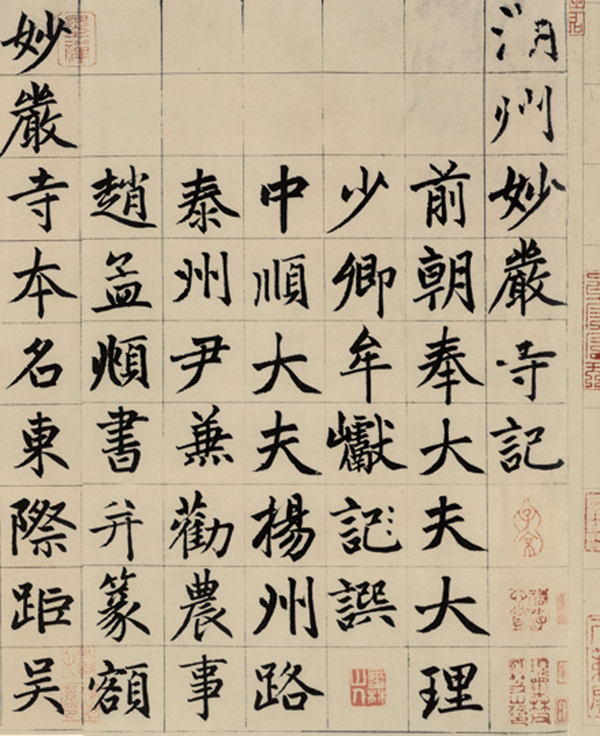 湖州妙嚴寺記
前朝奉大夫大理
少卿牟巘記譔
中順大夫揚州路
泰州尹兼勸農事
趙孟頫書并篆額
妙嚴寺本名東際距吳